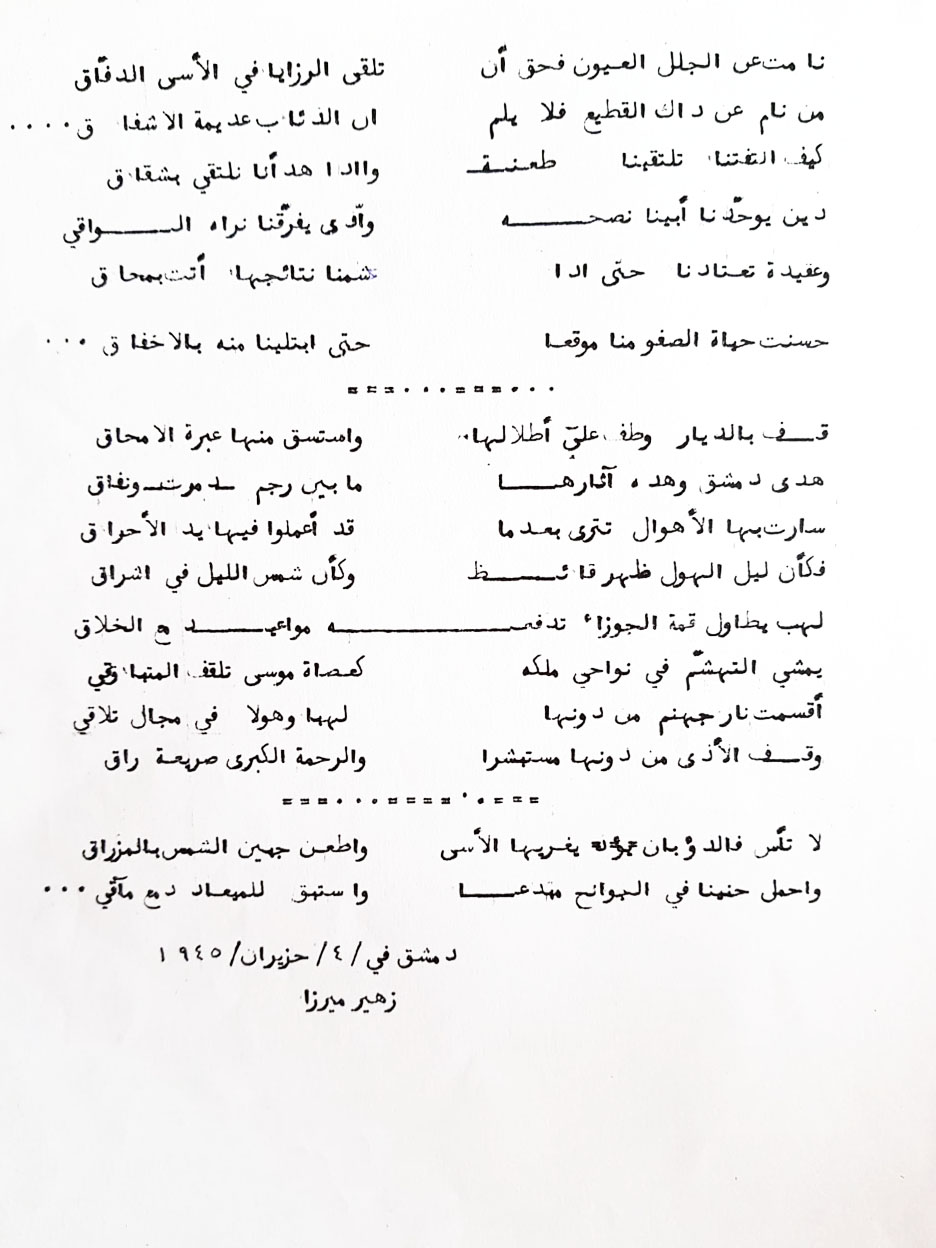 نامت عن الجلل العيون فحق أن تلقى الرزايا في الأسى الدفّاق
من نام عن داك القطيع فلا يلم ان الذئاب عديمة الاشفاق ....
كيف التفتنا تلتقينا طعنة واادا هدأنا نلتقي بشقاق
دين يوحّدنا أبينا نصحه وأدى يفرّقنا نراه الواقي
وعقيدة تعتادنا حتّى ادا شمنا نتائجها أتت بمحاق
حسنت حياة الصفو منا موقعا حتى ابتلينا منه بالاخفاق ...
===....===...
قف بالديار وطف على أطلالها.. واستسق منها عبرة الامحاق
هدى دمشق وهده آثارها ما بين رجم دمرت ونفاق
سارت بها الأهوال تترى بعدما قد أعملوا فيها يد الأحراق
فكأن ليل الهول ظهر قائظ وكأن شمس الليل في اشراق
لهب يطاول قمة الجوزاء تدفعه مواعيد مع الخلاق
يمشي التهشّم في نواحي ملكه كعصاة موسى تلقف المتهاوقي
أقسمت نار جهنم من دونها لهبا وهولا في مجال تلاقي
وقف الأذى من دونها مستهشرا والرحمة الكبرى صريعة راق
===....====..===
لا تأس فالدؤبان يغريها الأسى واطعن جبين الشمس بالمزراق
واحمل حنينا في الجوانح مبدعا واستبق للميعاد دمع مآقي ...
دمشق في /٤/ حزيران/ ١٩٤٥
زهير ميرزا